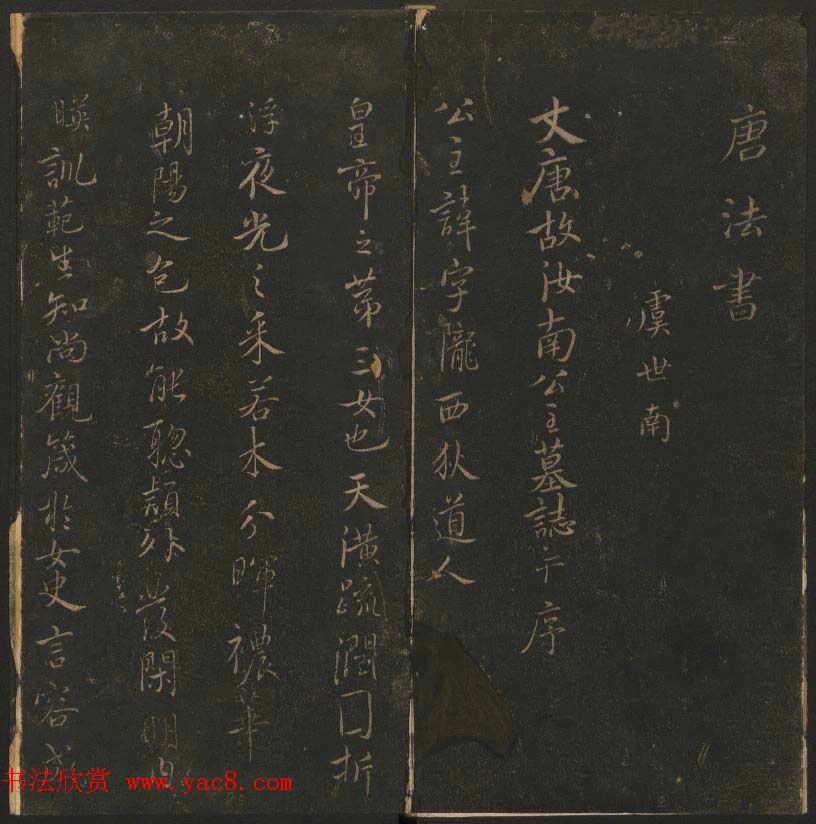 唐法書
虞世南
大唐故汝南公主墓誌并序
公主諱字隴西狄道人
皇帝之第三女也天潢疏潤圓折
浮夜光之采若木分暉穠華
朝陽之色故能聰穎外發閑明內
暎訓範生知尚觀箴於女史言容成
书法欣赏 www.yac8.com